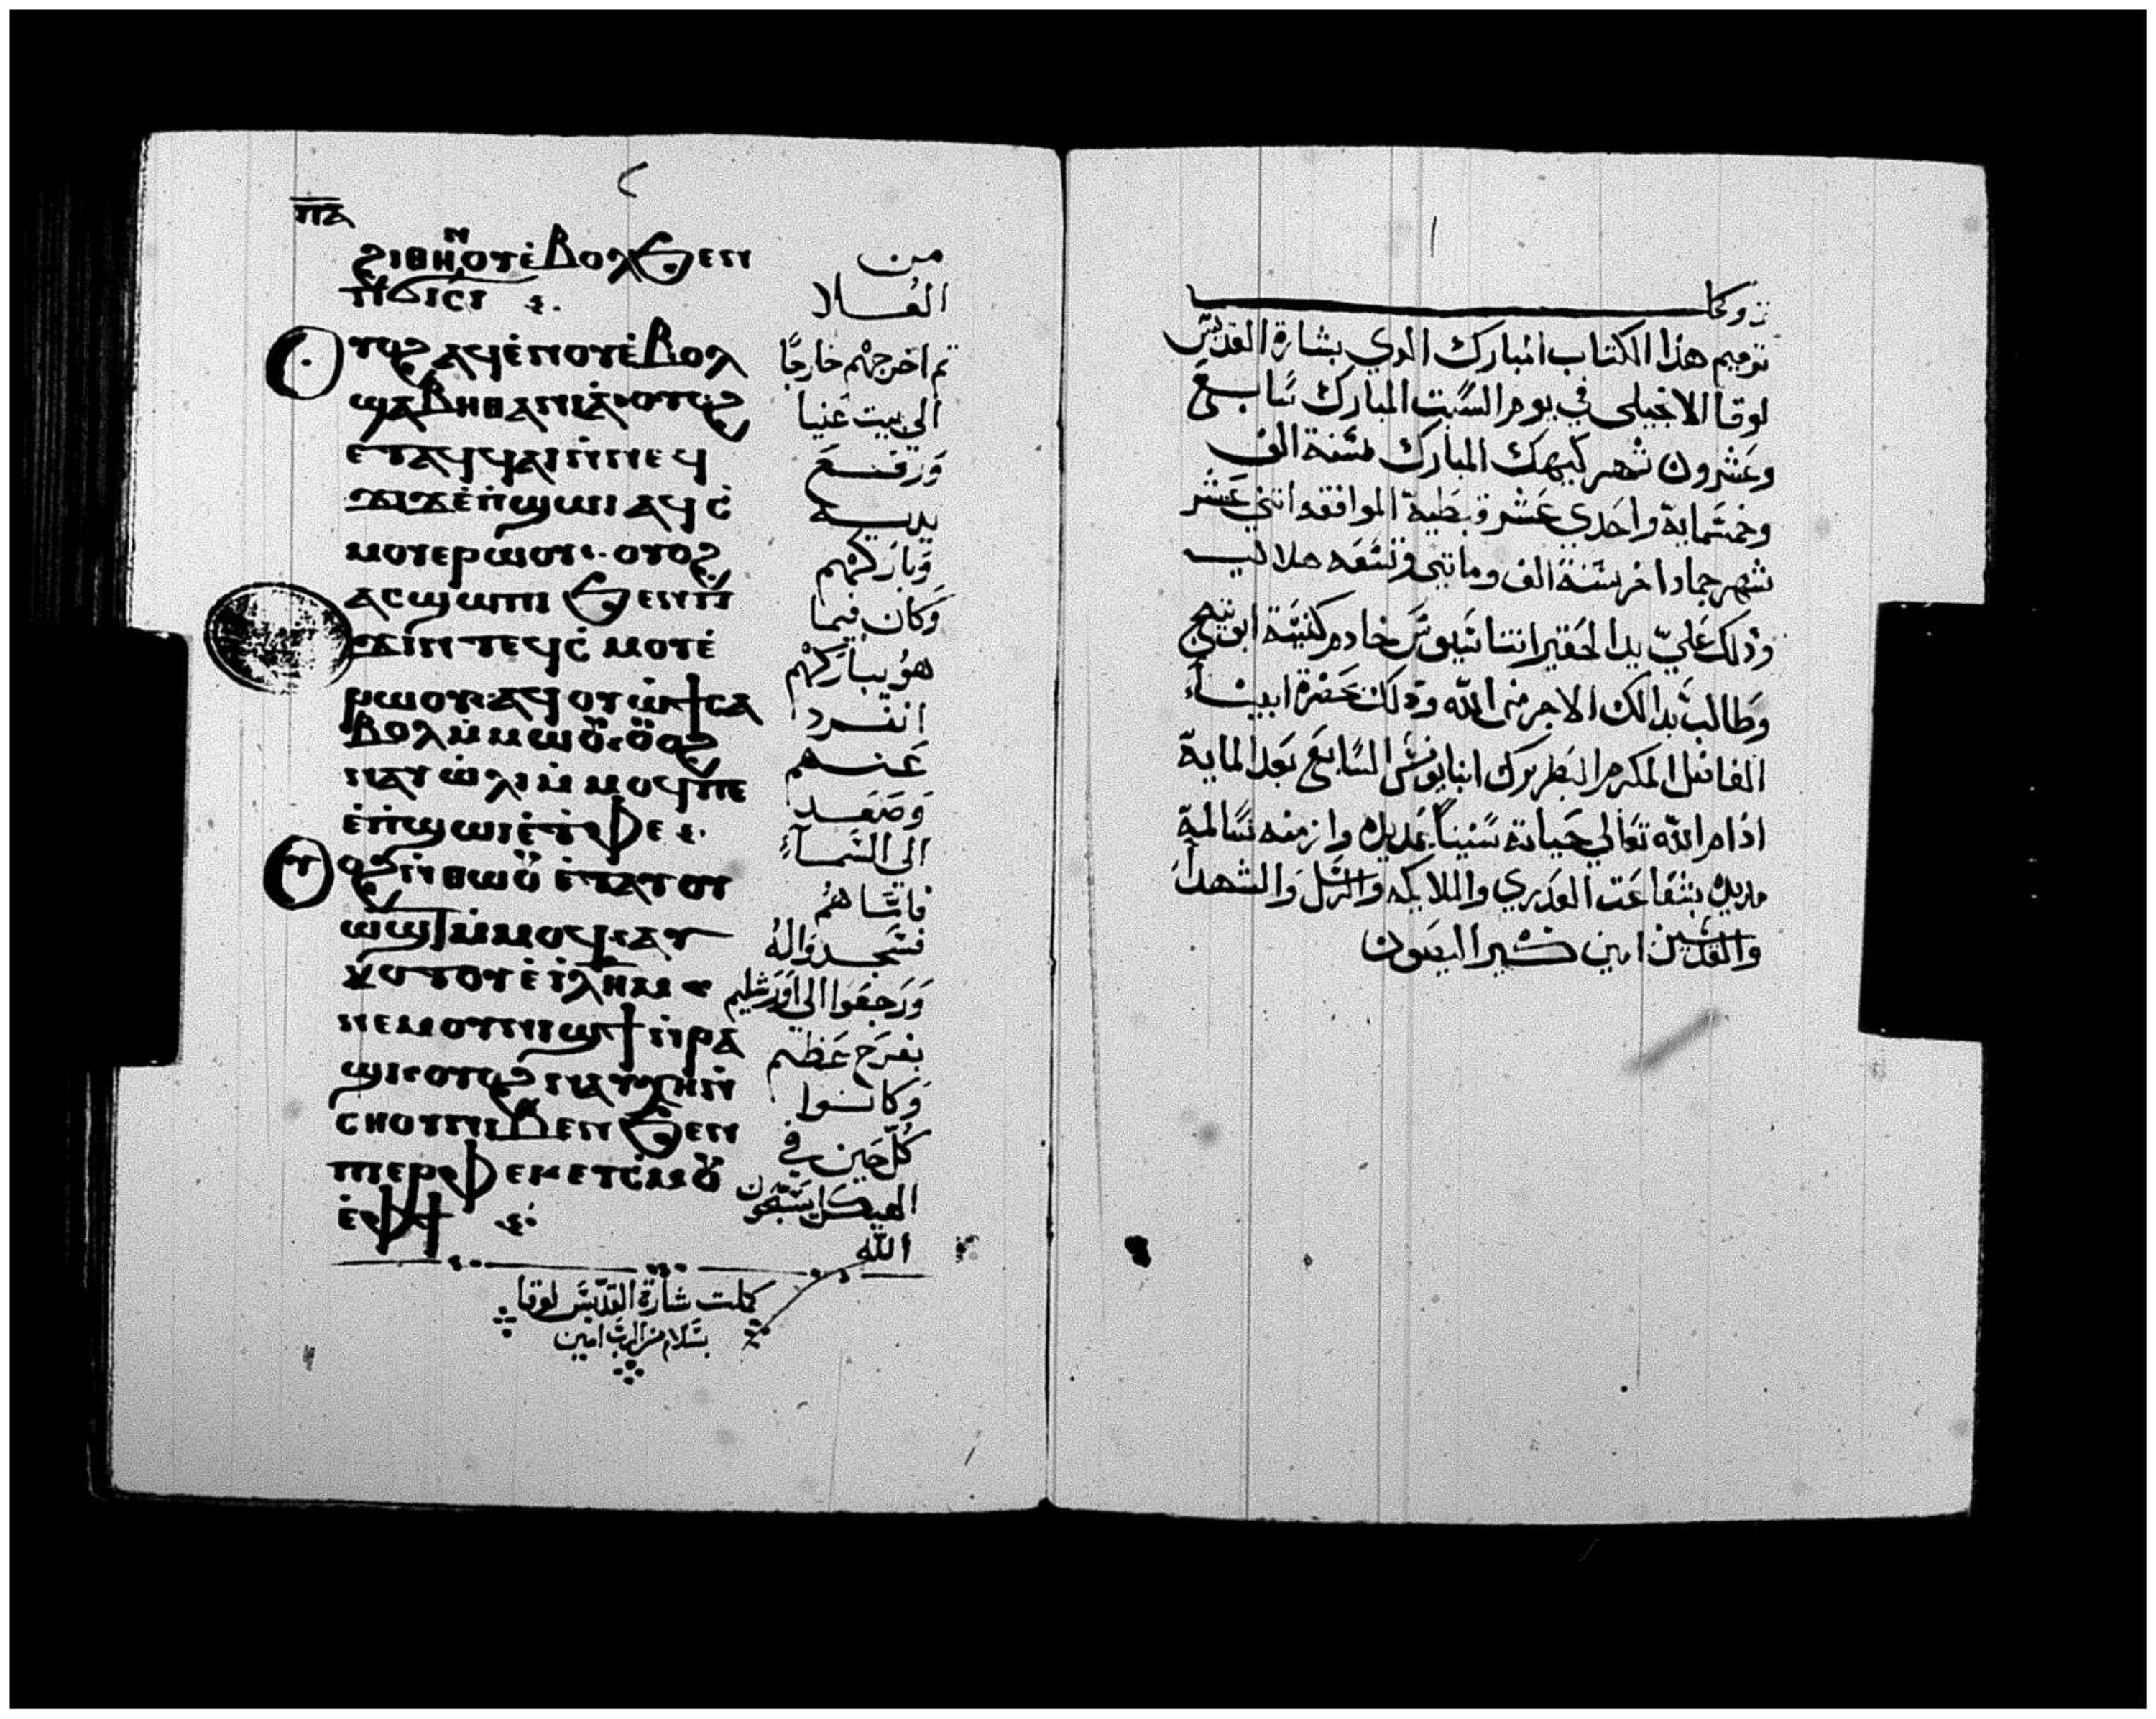 ⲡⲁ
ϩⲓⲑⲏⲛⲟⲩ ⲉ̇ⲃⲟⲗ ϧⲉⲛ
ⲡϭⲓⲥⲓ
ⲟⲩⲟϩ ⲁϥⲉ̇ⲛⲟⲩ ⲉ̇ⲃⲟⲗ
ϣⲁ ⲃⲏⲑⲁⲛⲓⲁ̇ ⲟⲩⲟϩ
ⲉⲧⲁϥϥⲁⲓ ⲛ̇ⲛⲉϥ
ϫⲓϫ ⲉ̇ⲡϣⲱⲓ ⲁϥⲥ̇
ⲙⲟⲩ ⲉⲣⲱⲟⲩ ⲟⲩⲟϩ
ⲁⲥϣⲱⲡⲓ ϧⲉⲛ ⲡ
ϫⲓⲛⲧⲉϥⲥ̇ⲙⲟⲩ ⲉ̇
ⲣⲱⲟⲩ ⲁϥⲟⲩⲱ̇ϯ ⲥⲁ
ⲃⲟⲗ ⲙ̇ⲙⲱⲟⲩ ⲟⲩⲟϩ
ⲛⲁⲩⲱ̇ⲗⲓ ⲙ̇ⲙⲟϥ ⲡⲉ
ⲉ̇ⲡϣⲱⲓ ⲉ̇ⲧⲫⲉ
ⲟⲩⲟϩ ⲛ̇ⲑⲱⲟⲩ ⲉ̇ⲧⲁⲩⲟⲩ
ⲱϣⲧ ⲙ̇ⲙⲟϥ ⲁⲩ
ⲕⲟⲧⲟⲩ ⲉ̇ ⲓ̇ⲗⲏⲙ
ⲛⲉⲙ ⲟⲩⲛⲓϣϯ ⲛ̇ⲣⲁ
ϣⲓ ⲟⲩⲟϩ ⲛⲁⲩⲭⲏ ⲛ̇
ⲥⲏⲟⲩ ⲛⲓⲃⲉⲛ ϧⲉⲛ
ⲡⲉⲣⲫⲉⲓ ⲉⲩⲥ̇ⲙⲟⲩ
ⲉ̇ⲫϯ
من
العُلا
ثم اخرجهُم خارجًا
الي بيت عَنيا
وَرَفـَـعَ
يديـه
وَبَارَكهُم
وَكان فيما
هوُ يبارَكهُم
انفـرد
عَنـهم
وَصَعَـد
الي السَمآءِ
فامَّا هُم
فسَجـدوَا لهُ
وَرَجعَوا الي اوَرَشليم
بفرَح عَظيم
وَكانـوا
كُلّ حَين في
الهيكل يسَبّحَون
الله
كملت شارَة القدّيسَ لوقا
بسَلام من الربَ امين
١
توميم هذا الكتاب المبارك الدي بشارة القديسَ
لوقا الانجيلي في يوم السَبت المبارك سَابـع
وعَشرون شهر كيهك المبارك سَنة الف
وخمسَماية واحَدي عَشر قبطية الموافقه اتني عَشر
شهر جماد اخر سَنة الف وماتني وتسَعَه هلاليـه
وذلك عَليّ يدا الحَقير اتناسَيوسَ خادم كنيسَة ابو
وَطالبَ بدالك الاجر من الله وذلك حَضرة ابينـاء
الفاضل المكرم البَطريرك انبا يونسَ السَابعَ بَعَد الماية
ادام الله تعَالي حَياته سَنيناً عَديده وازمنه سَالمة
مديده بشفاعَت العَدري والملايكه والرسَل وَالشهدآءَ
والقدسَين امين كـيرياليصَون